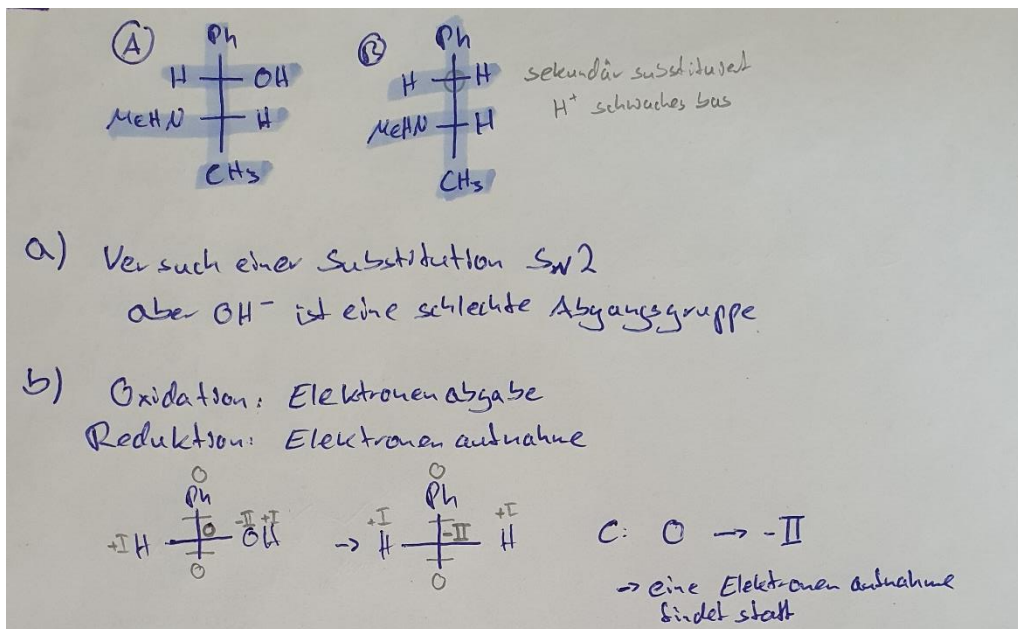 Ⓐ Ph
H OH
MeHN H
CH3
Ⓑ Ph
H H
MeHN H
CH3
sekundär substituiert
H+ schwaches bas
a) Versuch einer Substitution SN2
aber OH- ist eine schlechte Abgangsgruppe
b) Oxidation: Elektronenabgabe
Reduktion: Elektronenaufnahme
0
Ph
+I H 0 -II +I OH
0
→
0
Ph
+I H -II +I H
0
C: 0 → -II
→ eine Elektronenaufnahme
findet statt